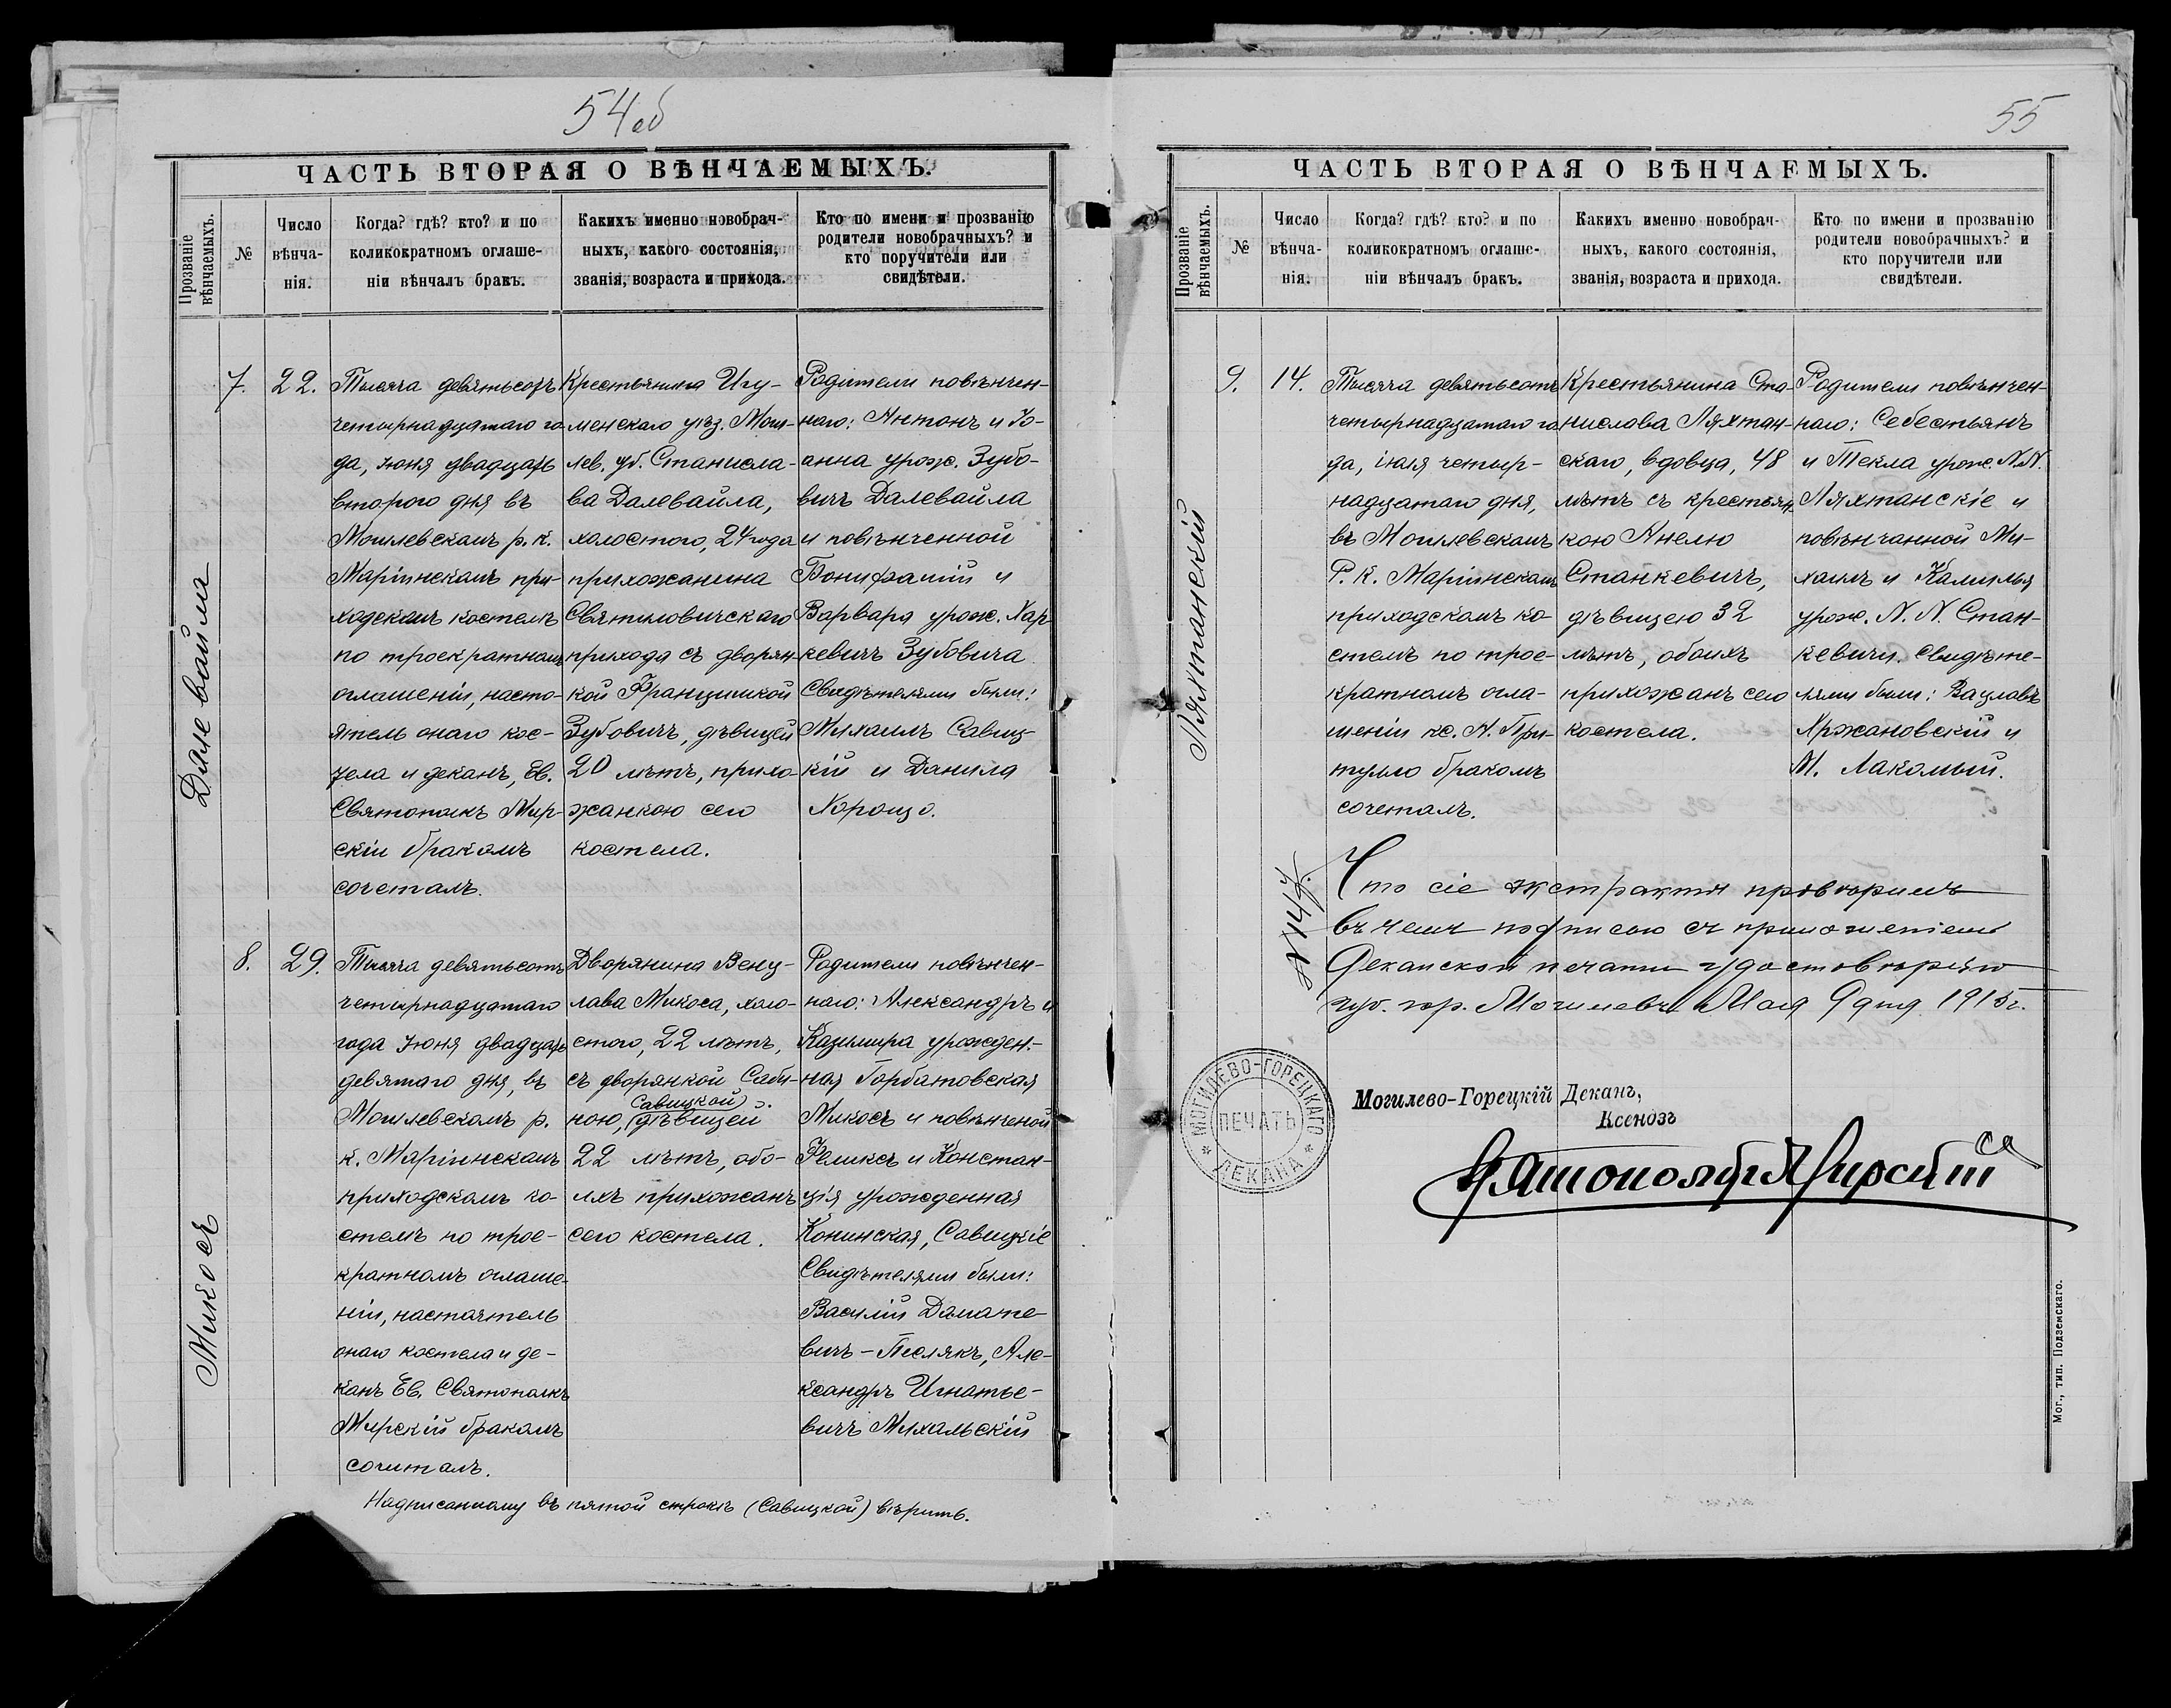 54об
ЧАСТЬ ВТОРАЯ О ВѢНЧАЕМЫХЪ.
Прозваніе вѣнчаемыхъ.
№
Число
вѣнча-
нія.
Когда? гдѣ? кто? и по
коликократномъ оглаше-
ніи вѣнчалъ бракъ.
Какихъ именно новобрач-
ныхъ, какого состоянія,
званія, возраста и прихода.
Кто по имени и прозванію
родители новобрачныхъ? и
кто поручители или
свидѣтели.
Далевайла
7.
22.
Тысяча девятьсотъ
четырнадцатаго го-
да, Іюня двадцать
второго дня въ
Могилевскомъ р. к.
Маріинскомъ при-
ходскомъ костелѣ
по троекратномъ
оглашеніи, насто-
ятель онаго кос-
тела и деканъ, Ев.
Святополкъ Мир-
скій бракомъ
сочеталъ.
Крестьянина Игу-
менскаго уѣз. Моги-
лев. губ. Станисла-
ва Далевайла,
холостого, 24 года
прихожанина
Святиловичскаго
прихода съ дворян-
кой Францишкой
Зубовичъ, дѣвицей
20 лѣтъ, прихо-
жанкою сего
костела.
Родители повѣнчен-
наго: Антонъ и Іо-
анна урож. Зубо-
вичъ Далевайла
и повѣнченной
Бонифатій и
Варвара урож. Хар
кевичъ Зубовича
Свидѣтелями были:
Михаилъ Савиц-
кій и Данила
Хорощо.
Микосъ
8.
29.
Тысяча девятьсотъ
четырнадцатаго
года Іюня двадцать
девятаго дня, въ
Могилевскомъ р.
к. Маріинскомъ
приходскомъ ко-
стелѣ по трое-
кратномъ оглаше-
ніи, настоятель
онаго костела и де-
канъ Ев. Святополкъ
Мирскій бракомъ
сочиталъ.
Дворянина Венц-
лава Микоса, холо-
стого, 22 лѣтъ,
съ дворянкой Саби-
Савицкой
ною, дѣвицей
22 лѣтъ, обо-
ихъ прихожанъ
сего костела.
Родители повѣнчен-
наго: Александръ и
Казимира урожден-
ная Горбатовская
Микосъ и повѣнченой
Феликсъ и Констан-
ція урожденная
Конинская, Савицкіе
Свидѣтелями были:
Василій Домате-
вичъ-Песлякъ, Але-
ксандръ Игнатье-
вичъ Михальскій
Надписанному въ пятой строкѣ (Савицкой) вѣрить.
55
ЧАСТЬ ВТОРАЯ О ВѢНЧАЕМЫХЪ.
Прозваніе вѣнчаемыхъ.
№
Число
вѣнча-
нія.
Когда? гдѣ? кто? и по
коликократномъ оглаше-
ніи вѣнчалъ бракъ.
Какихъ именно новобрач-
ныхъ, какого состоянія,
званія, возраста и прихода.
Кто по имени и прозванію
родители новобрачныхъ? и
кто поручители или
свидѣтели.
Ляхтанскій
9.
14.
Тысяча девятьсотъ
четырнадцатаго го
да, іюля четыр-
надцатаго дня,
въ Могилевскомъ
Р. К. Маріинскомъ
приходскомъ ко-
стелѣ по трое-
кратномъ огла-
шеніи кс. А. При-
тулло бракомъ
сочеталъ.
Крестьянина Ста-
нислава Ляхтан-
скаго, вдовца, 48
лѣтъ съ крестьян-
кою Анелю
Станкевичъ,
дѣвицею 32
лѣтъ, обоихъ
прихожанъ сего
костела.
Родители повѣнчен-
наго: Себестьянъ
и Текла урож. N.N.
Ляхтанскіе и
повѣнчанной Ми-
хаилъ и Камилья
урож. N. N. Стан-
кевичи. Свидѣте-
лями были: Вацлавъ
Хржановскій и
М. Лакомый.
№ 147.
Что сіе экстракты провѣрилъ
въ чемъ подписью съ приложеніемъ
Деканской печати удостовѣряю
губ. гор. Могилевъ Мая 9 дня 1915 г.
МОГИЛЕВО-ГОРЕЦКАГО
ПЕЧАТЬ
ДЕКАНА
Могилево-Горецкій Деканъ,
Ксендзъ
Святополкъ Мирскій
Мог., тип. Подземскаго.